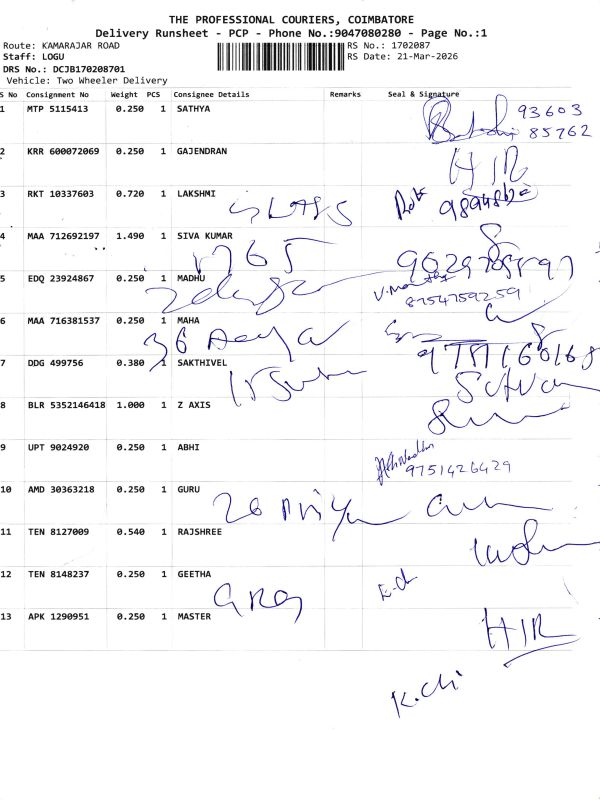 THE PROFESSIONAL COURIERS, COIMBATORE
Delivery Runsheet - PCP - Phone No.:9047080280 - Page No.:1
Route: KAMARAJAR ROAD RS No.: 1702087
Staff: LOGU RS Date: 21-Mar-2026
DRS No.: DCJB170208701
Vehicle: Two Wheeler Delivery
S No Consignment No Weight PCS Consignee Details Remarks Seal & Signature
1 MTP 5115413 0.250 1 SATHYA 93603
85762
2 KRR 600072069 0.250 1 GAJENDRAN HIR
3 RKT 10337603 0.720 1 LAKSHMI
4 MAA 712692197 1.490 1 SIVA KUMAR
765
5 EDQ 23924867 0.250 1 MADHU
8754759259
6 MAA 716381537 0.250 1 MAHA
36
7 DDG 499756 0.380 1 SAKTHIVEL
8 BLR 5352146418 1.000 1 Z AXIS
9 UPT 9024920 0.250 1 ABHI
9751426429
10 AMD 30363218 0.250 1 GURU
26 priya
11 TEN 8127009 0.540 1 RAJSHREE
12 TEN 8148237 0.250 1 GEETHA
13 APK 1290951 0.250 1 MASTER HIR